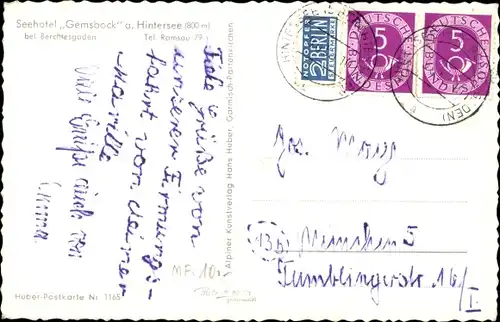 Seehotel „Gemsbock" a. Hintersee (800 m)
bei Berchtesgaden Tel. Ramsau 79
Viele Grüße von
unserer Firmungs-
fahrt von deiner
Mariele
Viele Grüße auch von
Emma
Alpiner Kunstverlag Hans Huber, Garmisch-Partenkirchen
Huber-Postkarte Nr. 1165
NOTOPFER
2 BERLIN
STEUERMARKE
5
DEUTSCHE BUNDESPOST
5
DEUTSCHE BUNDESPOST
Jos. Mang
(13b) München 5
Tumblingerstr. 16/I